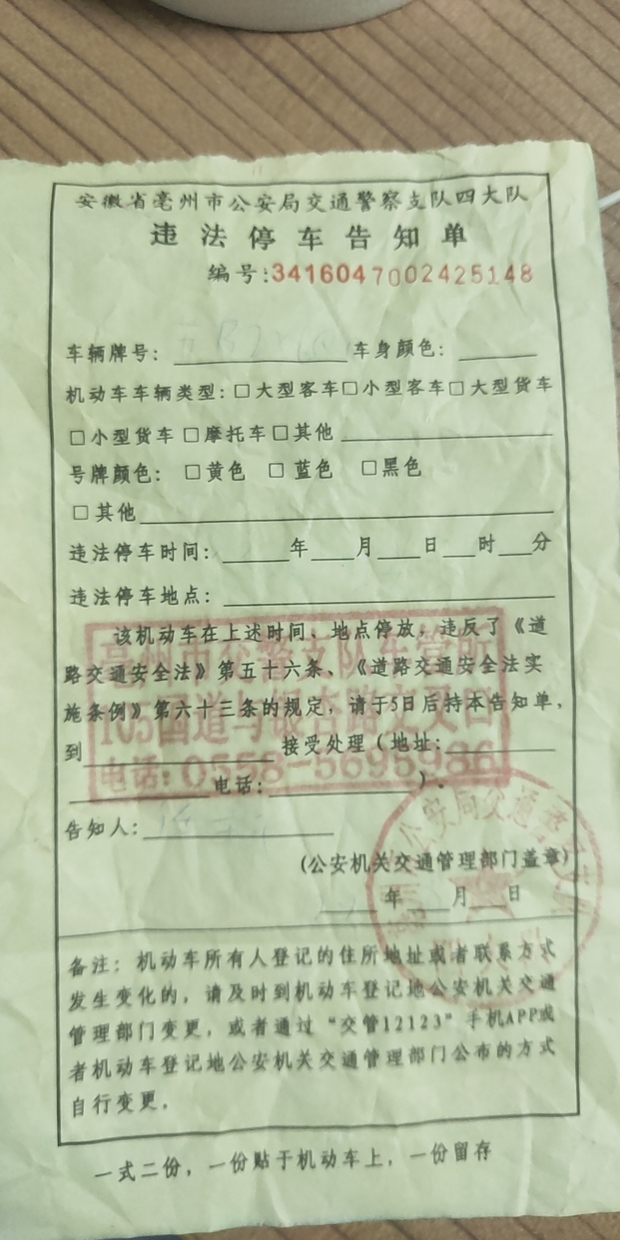 安徽省亳州市公安局交通警察支队四大队
违法停车告知单
编号:3416047002425148
车辆牌号: 车身颜色:
机动车车辆类型:□大型客车□小型客车□大型货车
□小型货车□摩托车□其他
号牌颜色: □黄色 □蓝色 □黑色
□其他
违法停车时间: 年 月 日 时 分
违法停车地点:
该机动车在上述时间、地点停放,违反了《道
路交通安全法》第五十六条、《道路交通安全法实
施条例》第六十三条的规定,请于5日后持本告知单,
到 接受处理(地址:
电话: )。
105国道与
电话:0558-5695986
告知人:
(公安机关交通管理部门盖章)
年 月 日
公安局交通
备注:机动车所有人登记的住所地址或者联系方式
发生变化的,请及时到机动车登记地公安机关交通
管理部门变更,或者通过“交管12123”手机APP或
者机动车登记地公安机关交通管理部门公布的方式
自行变更.
一式二份,一份贴于机动车上,一份留存